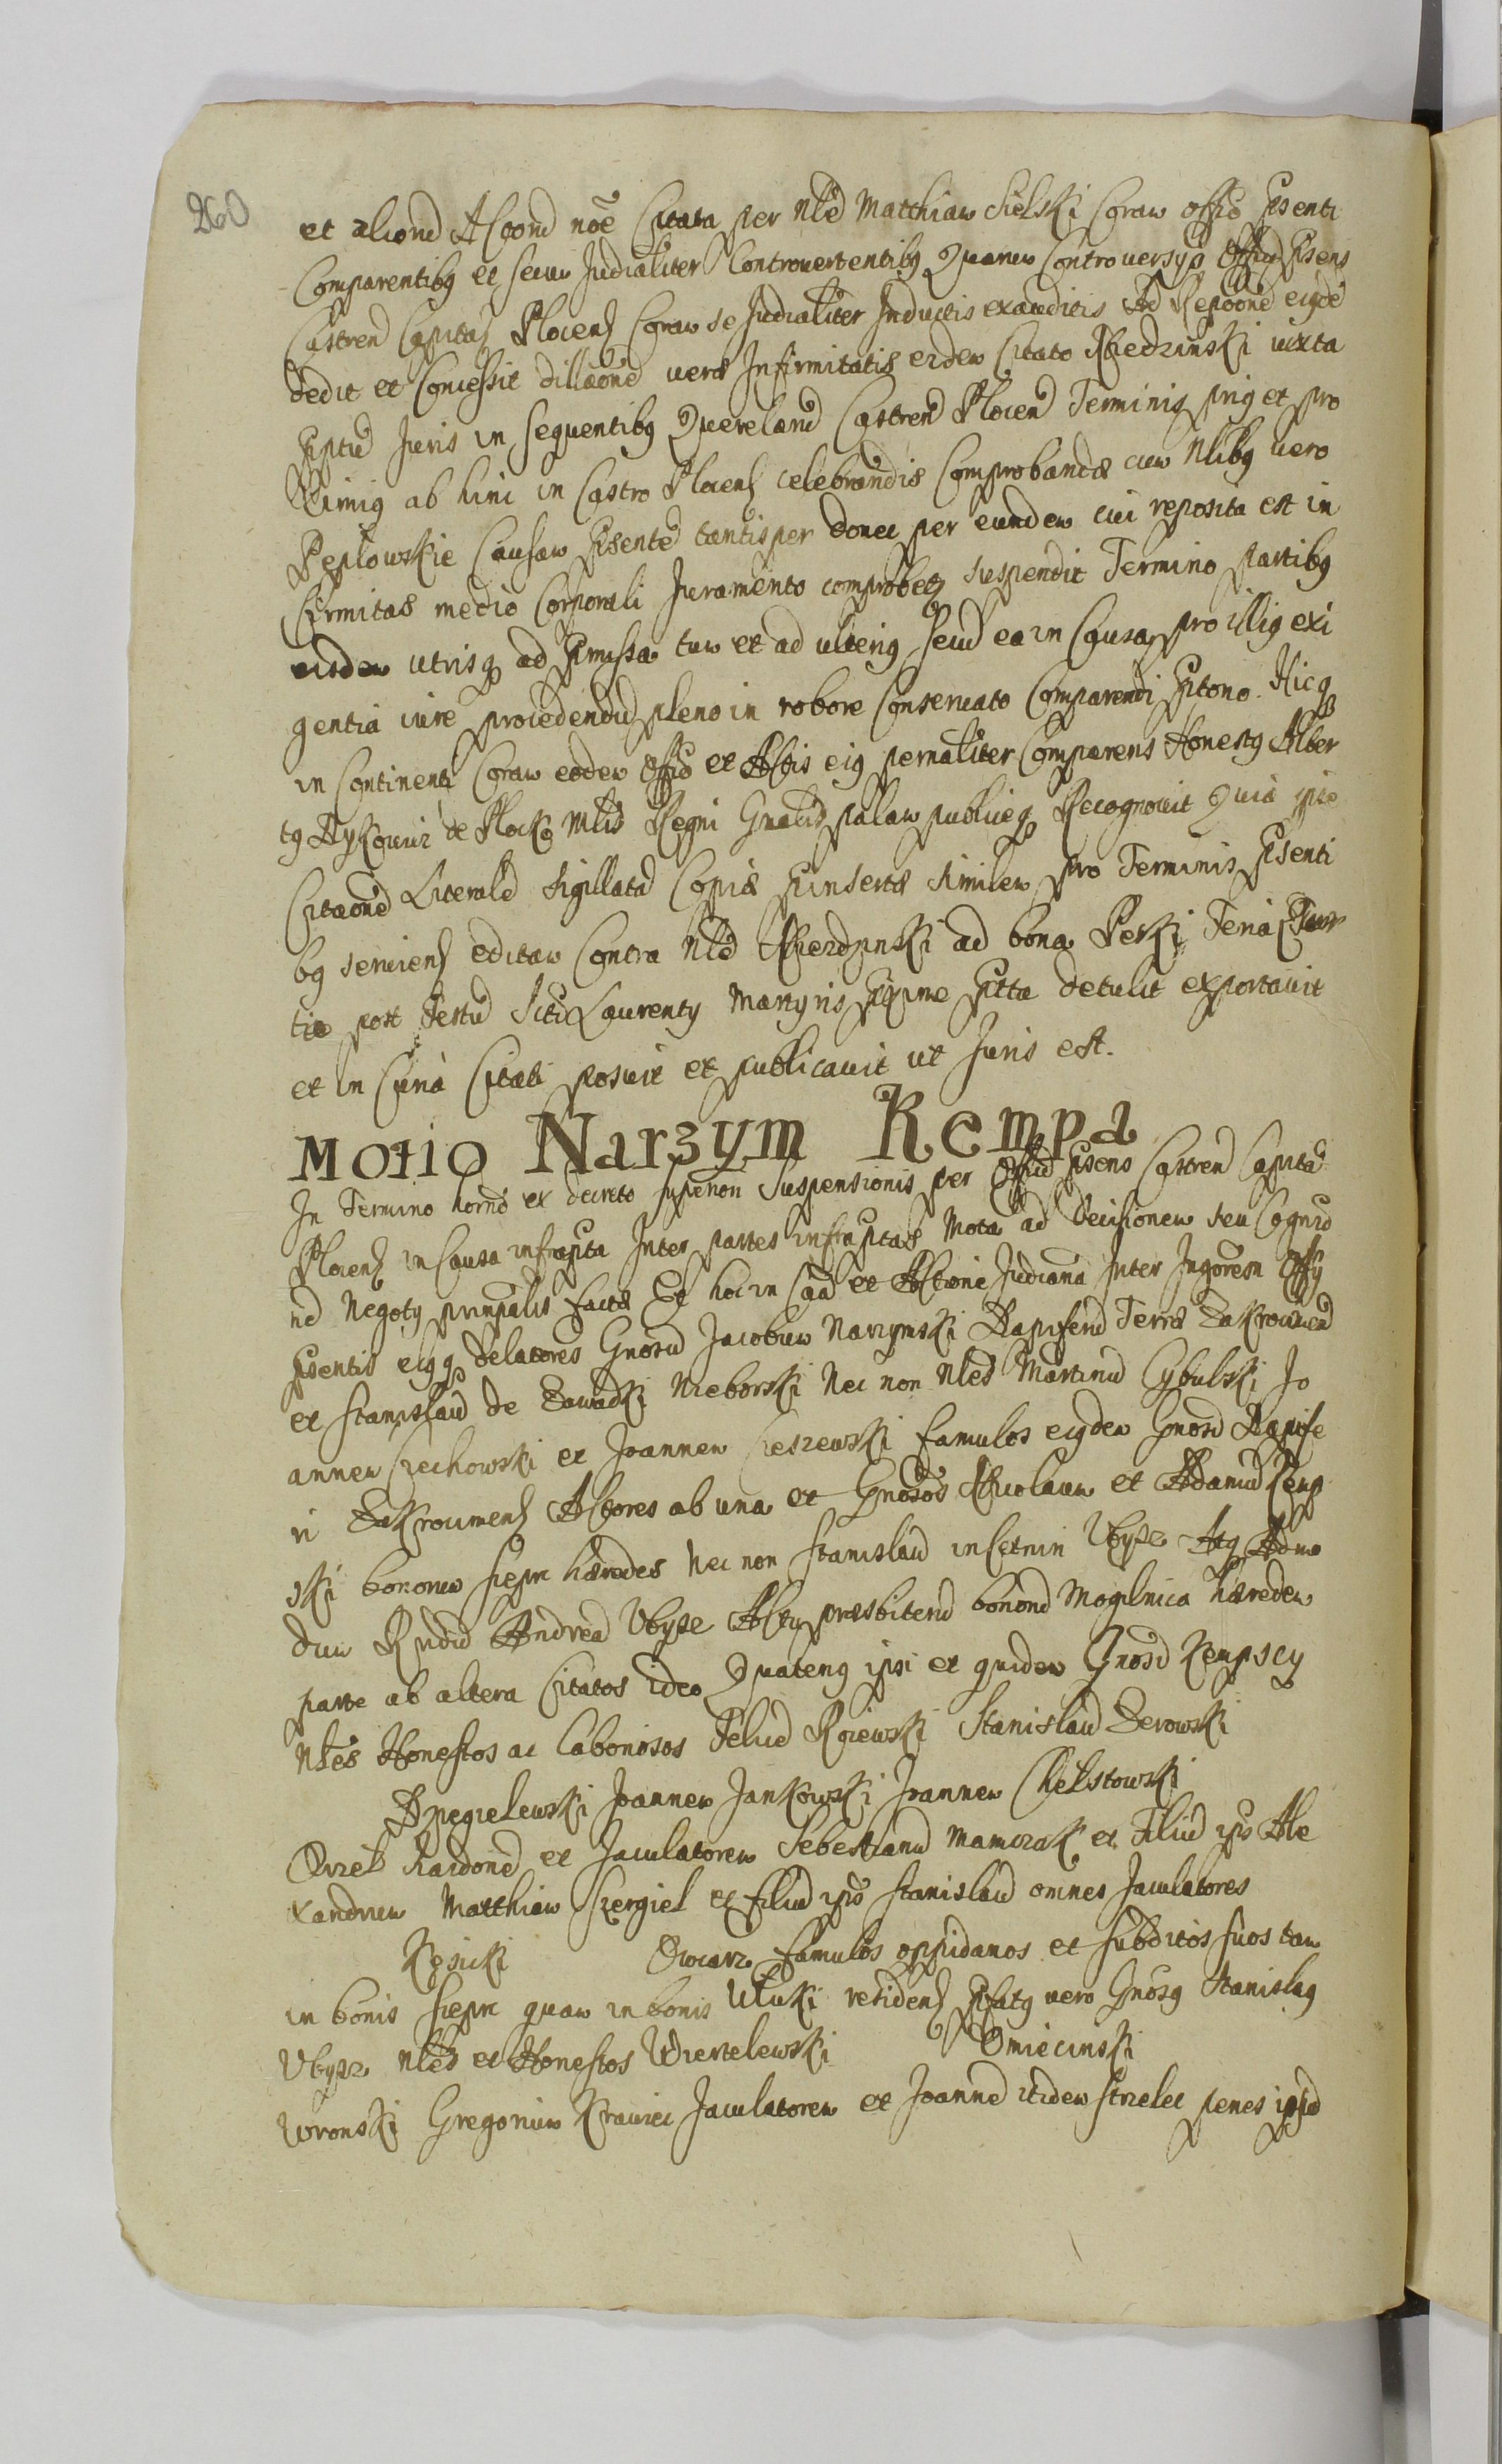 260
et aliond Actiond noe Citata per Nlẽ Matthiam Sielski Coram offõ Psenti
Comparentibq et secum Judicialiter Controvertentibq Quarum Controversys Offiu Psens
Castren Capitaz Plocenz Coram se Judicialiter Inductis exauditis Ad Repõonẽ eiqdẽ
dedit et Concessit dillaõnẽ verã Infirmitatis eidem Citato Miedzinski iuxta
Pptũ Juris in sequentibq Querelarũ Castren Plocen Terminis priq et pro
ximiq ab hinc in Castro Plocenz celebrandis Comprobandã cum Nlibq vero
Peplowskie Causam Psentẽ tantisper donec per eundem cui reposita est in
firmitas medio Corporali Juramento comprobetz suspendit Termino partibq
eisdem utrisq ad Pmissa tum et ad ulteriq seud ea in Causa pro illiq exi
gentia iure procedendũ pleno in robore Conservato Comparendi Pitono. Hicq
in Continenti Coram eodem Offõ et Actis eiq psonaliter Comparens Honestq Alber
tq Rykowicz de Plocko Mlis Regni Gnalis palam publiceq Recognovit Quia ipse
Citaõnẽ Literalẽ Sigillatã Copiã Pinsertã similem pro Terminis Psenti
bq servienz editam Contra Nlẽ Miedzinski ad bona Peski Feria Ter
tia post Festũ Scti Laurenty Martyris Pxime Pttã detulit exportavit
et in Curia Citati posuit et publicavit ut Juris est.
Motio Narzym Kempa
In Termino horno ex decreto Superiori Suspensionis per Offiu Psens Castren Capita
Plocenz in Causa infrapta Inter partes infraptas Mota ad decisionem seu Cognio
nẽ Negoty principalis factã Et hoc in Caã et Actione Judiciana Inter Ingorem Offy
Psentis eiqq delatores Gnosũ Jacobum Narzymski Dapiferũ Terrã Zakroczimen
et Stanislaũ de Zawadki Nieborski Nec non Nlẽs Martinũ Cybulski Jo
annem Czechowski et Joannem Cieszewski famulos eiqdem Gnosi Dapife
ri Zakrocimenz Actores ab una et Gnosos Nicolaum et Adamũ Kemp
ski bonorum Sieprc hæredes Nec non Stanislaũ in Cetnin Ubysz Atq Adm
dum Rndũ Andreã Ubysz Actu præsbiterũ bonorũ Mogilnica hæredem
parte ab altera Citatos ideo Quatenq ipsi et quidem Gnosi Kempscy
Nlẽs Honestos ac Laboriosos Felicẽ Roiewski Stanislaũ Zerowski
Szpegielewski Joannem Jankowski Joannem Chelstowski
Orzel haidonẽ et Jaculatorem Sebestianũ Mamczak et Filiũ ipso Ale
xandrum Matthiam Szergiel et filiũ ipso Stanislaũ omnes Jaculatores
Kęsicki Owcarz famulos oppidanos et subditos suos tam
in bonis Sieprc quam in bonis Uluki residenz Pfatq vero Gnosq Stanislaq
Ubysz Nlẽs et Honestos Wiertelewski Omiecinski
Wronski Gregorium Krawiec Jaculatorem et Joannẽ itidem Strzelec penes ipsũ